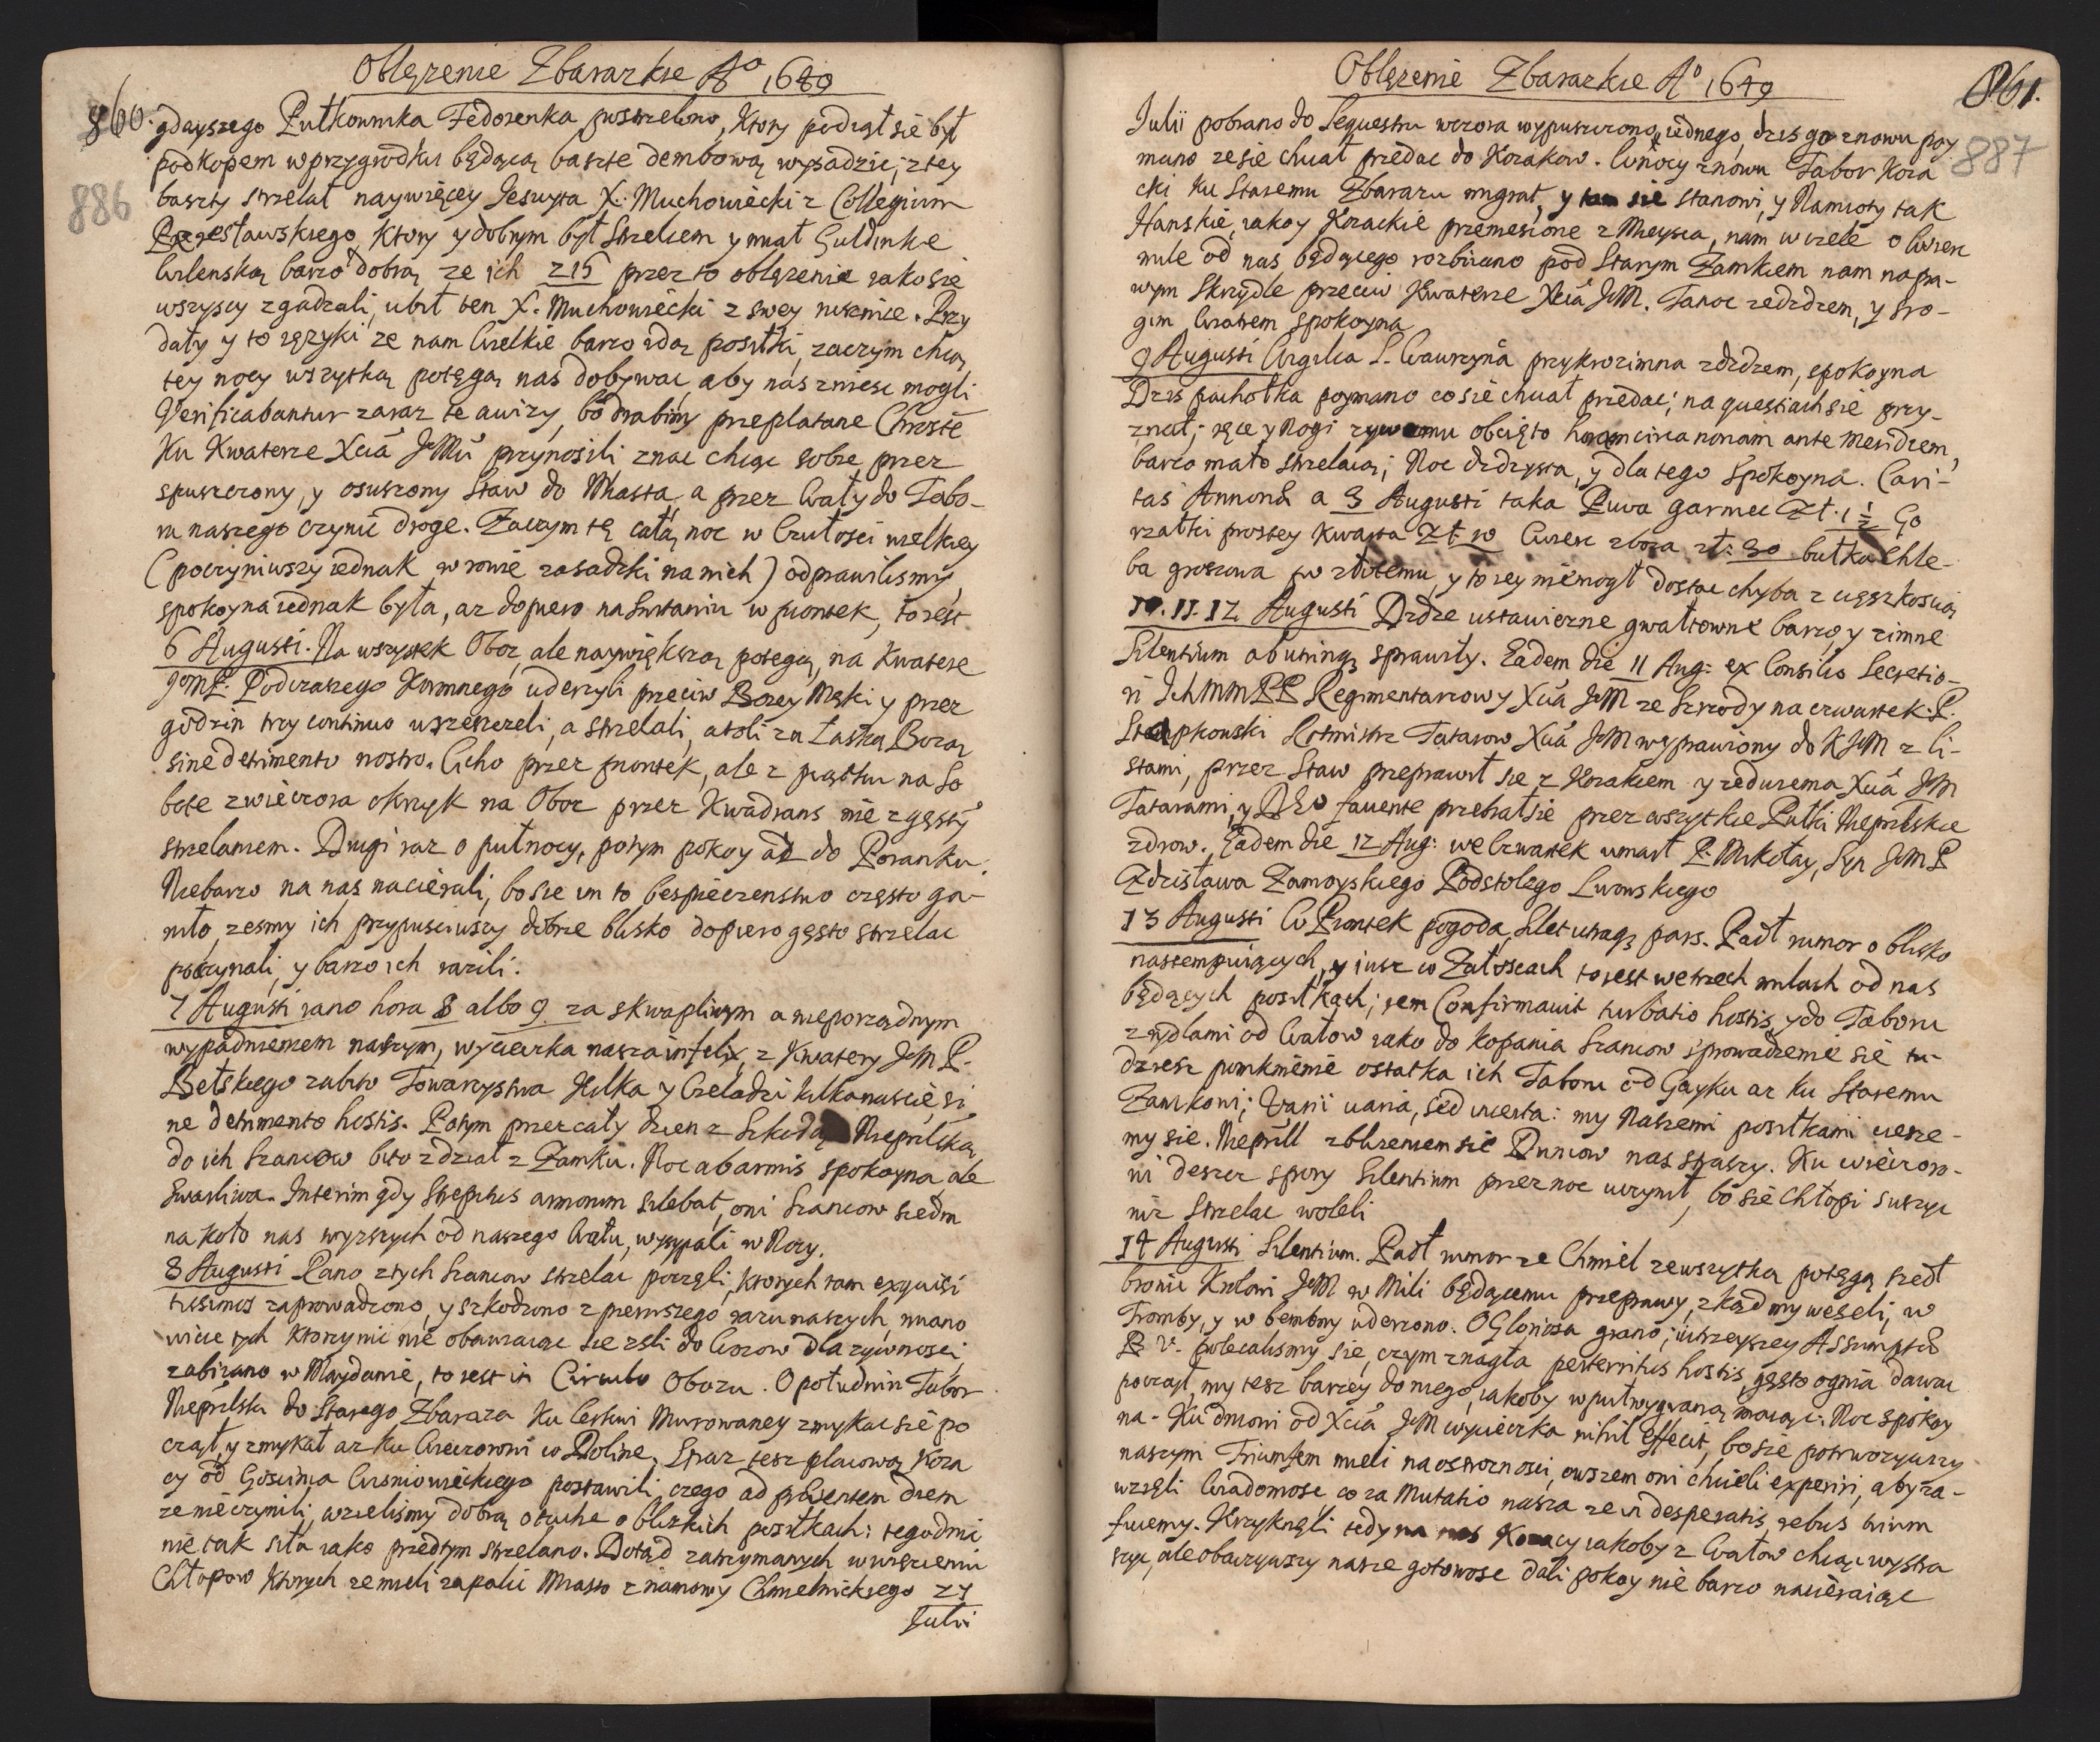 Oblężenie Zbarazkie Aº 1649
860.
886
gdayszego Pułkownika Fedorenka postrzelono, ktory podiął sie był
podkopem w przygrodku będącą baszte dembową wysadzic; z tey
baszty strzelał naywięcey Jesuyta X. Muchowiecki z Collegium
Peresławskiego, ktory y dobrym był strzelcem y miał Guldinke
Wilenską barzo dobrą ze ich 215 przez to oblężenie iako sie
wszyscy zgadzali, ubił ten X. Muchowiecki z swey rusznice. Przy
dały y to ięzyki ze nam Wielkie barzo idą posiłki, zaczym chcą
tey nocy wszytką potęgą nas dobywac, aby nas zniesc mogli
Verificabantur zaraz te awizy, bo drabiny preplatane Chroste
Ku Kwaterze Xcia JeMci przynosili znac chcąc sobie przez
spuszczony, y osuszony Staw do Miasta, a przez Wały do Tabo-
ru naszego czynic droge. Zaczym tę całą noc w Czułosci wielkiey
(poczyniwszy iednak w rowie zasadzki na nich) odprawilismy,
spokoyna iednak była, az dopiero na switaniu w piontek, to iest
6 Augusti. Na wszystek Oboz, ale naywiększą potęgą, na Kwatere
JeMP. Podczaszego Koronnego uderzyli przeciw Bozey Męki y przez
godzin trzy continuo wrzeszczeli, a strzelali, atoli za Łaską Bozą
sine detrimento nostro. Cicho przez piontek, ale z piątku na So
bote zwieczora okrzyk na Oboz przez Kwadrans nie z gęsty
strzelaniem. Drugi raz o pułnocy, potym pokoy az do Poranku.
Niebarzo na nas nacierali, bo sie im to bespieczenstwo często ga-
niło, zesmy ich przypusciwszy dobrze blisko dopiero gęsto strzelac
poczynali, y barzo ich razili.
7 Augusti rano hora 8 albo 9 za skwapliwym a nieporządnym
wypadnieniem naszym, wycieczka nasza infelix, z Kwatery JeM P.
Bełskiego zabito Towarzystwa Kilka y Czeladzi kilkanascie, si
ne detrimento hostis. Potym przez cały dzien z Szkodą Nieprila,
do ich szancow bito z dział z Zamku. Noc ab armis spokoyna ale
swarliwa. Interim gdy strepitus armorum silebat, oni szancow siedm
na koło nas wyzszych od naszego Wału, wysypali w Nocy.
8 Augusti Rano z tych szancow strzelac poczęli, ktorych tam exquisi
tissimos zaprowadzono, y szkodzono z pierwszego razu naszych, miano
wicie tych ktorzy nic nie obawiaiąc sie szli do Wozow dla zywnosci
zabiiano w Maydanie, to iest in Circulo Obozu. O południu Tabor
Nieprilski do Starego Zbaraza Ku Cerkwi Murowaney zmykac sie po
czął, y zmykał az ku Wieczorowi w Doline, Straz tesz placową Koza
cy od Goscinca Wisniowieckiego postawili, czego ad praesentem diem
ze nie czynili, wzielismy dobrą otuche o bliskich posiłkach: tego dnia
nie tak siła iako przedtym strzelano. Dotąd zatrzymanych w więzieniu
Chłopow ktorych ze mieli zapalic Miasto z namowy Chmielnickiego 27
Julii
Oblężenie Zbarazkie Aº 1649
861.
887
Iulii pobrano do Sequestru wczora wypuszczono iednego, dzis go znowu poy
mano ze sie chciał przedac do Kozakow. W nocy znowu Tabor Koza
cki ku Staremu Zbarazu migrał, y tam sie stanowi, y Namioty tak
Hanskie, iako y Kozackie przeniesione z Mieysca, nam w czele o Cwierc
mile od nas będącego rozbiiano pod Starym Zamkiem nam na pra-
wym Skrzydle przeciw Kwaterze Xcia JeM. Ta noc ze dzdzem, y sro-
gim Wiatrem spokoyna
9 Augusti Wigilia S. Wawrzynca przykro zimna z dzdzem, spokoyna
Dzis pachołka poymano co sie chciał przedac; na questiach sie przy-
znał; ręce y Nogi zywemu obcięto horam circa nonam ante meridiem,
barzo mało strzelaią; Noc dzdzysta, y dla tego Spokoyna. Cari-
tas Annonae a 3 Augusti taka Piwa garniec Zł. 1½ Go
rzałki prostey Kwarta Zł 10 Cwierc zboza zł: 30 bułka Chle-
ba groszowa po złotemu, y to iey nie mogł dostac chyba z cięszkoscią
10. 11. 12 Augusti Dzdze ustawiczne gwałtowne barzo, y zimne
Silentium ab utrinq₃ sprawiły. Eadem die 11 Aug: ex Consilio Secretio-
ri Ich MM PP Regimentarzow y Xcia JeM ze Srzody na czwartek P.
Stąpkowski Rotmistrz Tatarow Xcia JeM wyprawiony do KJeM z li-
stami, przez Staw przeprawił sie z Kozakiem y ze dwiema Xcia JeM
Tatarami, y DEo favente przebrał sie przez wszytkie Pułki Nieprilskie
zdrow. Eadem die 12 Aug: we Czwartek umarł P. Mikołay, Syn JeM P
Zdzisława Zamoyskiego Podstolego Lwowskiego
13 Augusti W Piontek pogoda, silet utraq₃ pars. Padł rumor o blisko
nastempuiących, y iusz w Załoscach to iest we trzech milach od nas
będących posiłkach; rem Confirmavit turbatio hostis, y do Taboru
z rydlami od Wałow iako do kopania szancow sprowadzenie sie tu-
dziesz pomknienie ostatka ich Taboru od Gayku az ku Staremu
Zamkowi; Varii varia, sed incerta: my Naszemi posiłkami ciesze-
my sie. Neprill zblizeniem sie Duncow nas straszy. Ku wieczoro-
wi deszcz spory Silentium przez noc uczynił, bo sie Chłopi suszyc
niz strzelac woleli
14 Augusti Silentium. Padł rumor ze Chmiel ze wszytką potęgą szedł
bronic Krolowi JeM w Mili będącemu przeprawy, zkąd my weseli, w
Tromby, y w bembny uderzono. O Gloriosa grano; iutrzeyszey Assumptio
B V. polecalismy sie, czym z nagła perterritus hostis, gęsto ognia dawac
począł, my tesz barziey do niego, iakoby w pułwygraną maiąc: Noc spokoy
na. Ku dniowi od Xcia JeM wycieczka nihil effecit, bo sie potrwozywszy
naszym Triumfem mieli na ostroznosci, owszem oni chcieli experiri, aby za-
wzięli Wiadomosc, co za Mutatio nasza ze in desperatis rebus trium
fuiemy. Krzyknęli tedy na nas Kozacy iakoby z Wałow chcąc wystra
szyc, ale obaczywszy nasze gotowosc dali pokoy nie barzo nacieraiąc